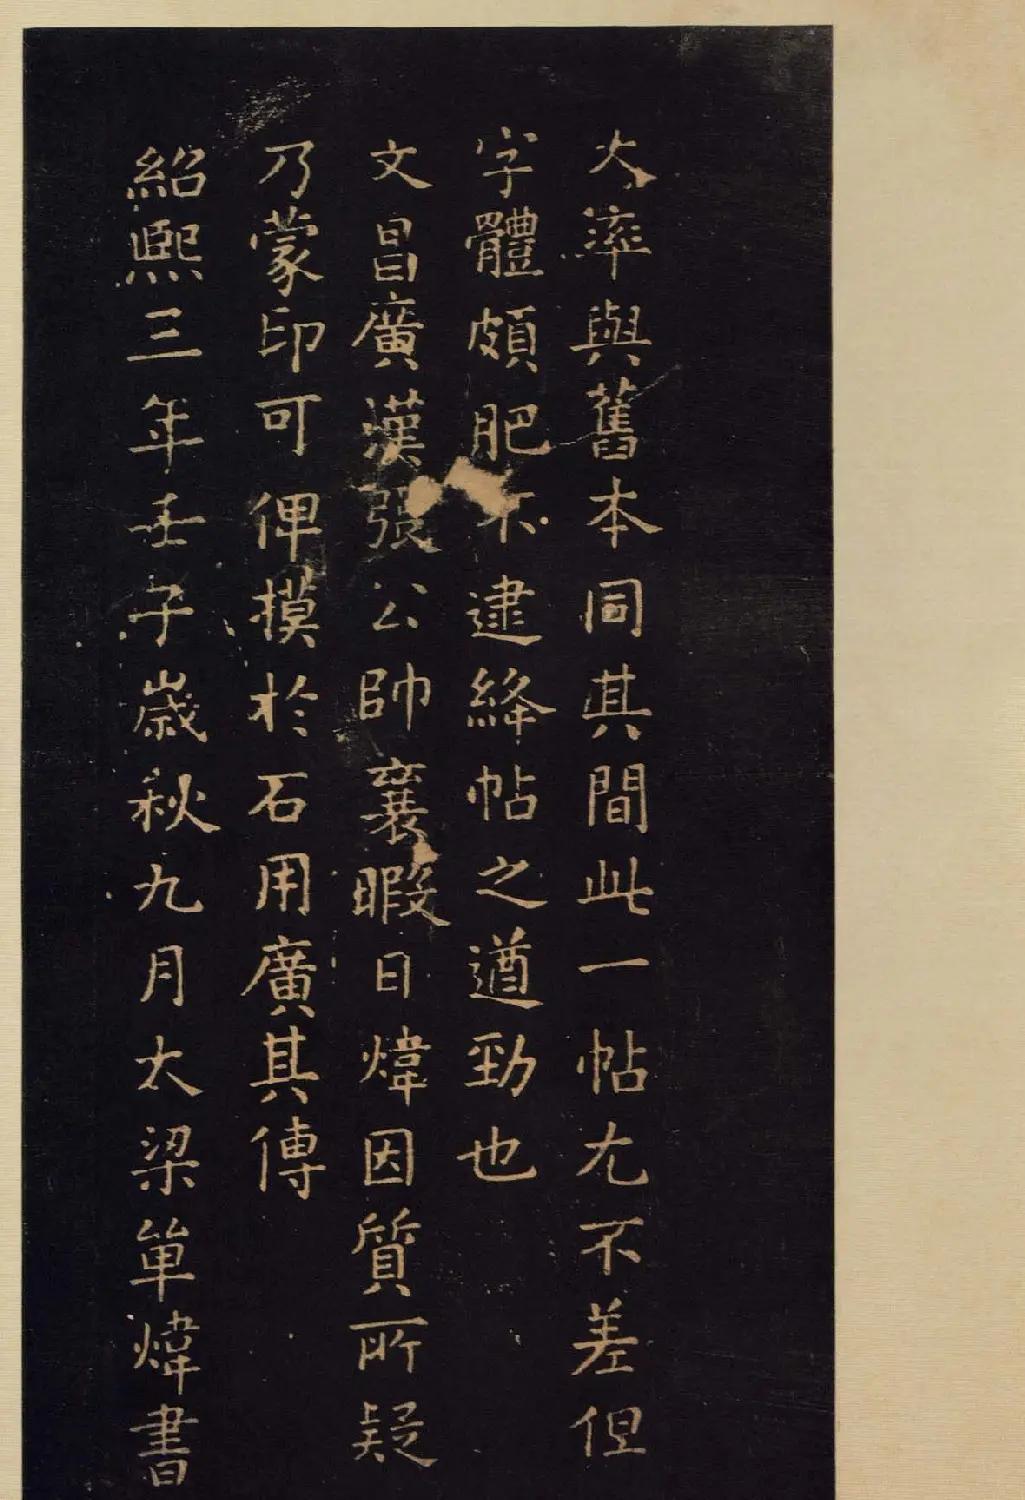 大率與舊本同其間此一帖尤不差但
字體頗肥不逮絳帖之遒勁也
文昌廣漢張公帥襄暇日煒因質所疑
乃蒙印可俾摸於石用廣其傳
紹熙三年壬子歲秋九月大梁單煒書